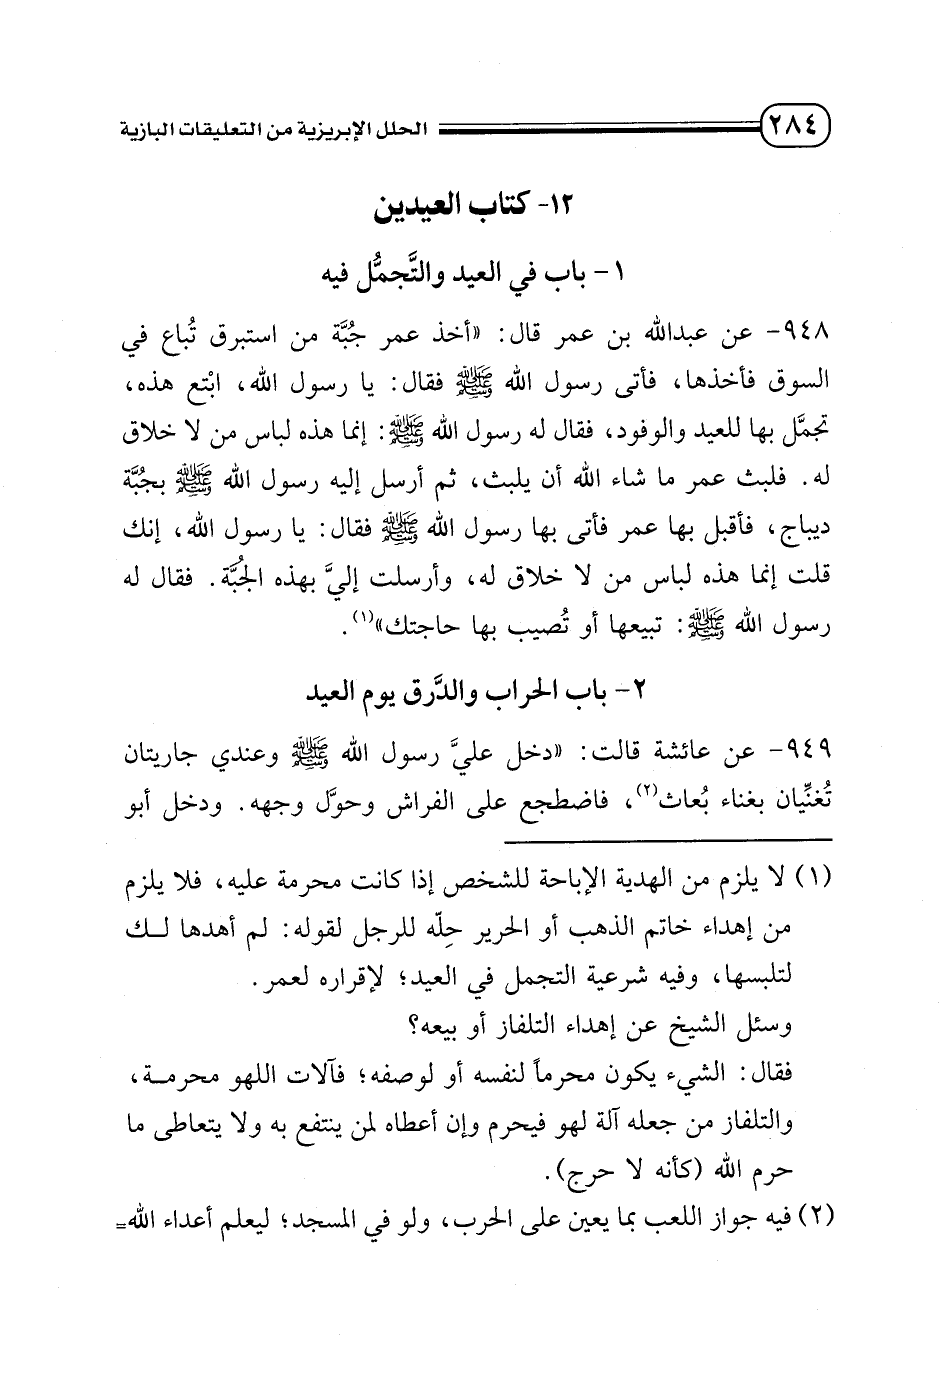 ٢٨٤ الحلل الإبريزية من التعليقات البازية
١٢- كتاب العيدين
١- باب في العيد والتَّجمُّل فيه
٩٤٨- عن عبدالله بن عمر قال: «أخذ عمر جُبَّة من استبرق تُباع في
السوق فأخذها، فأتى رسول الله ﷺ فقال: يا رسول الله، ابْتع هذه،
تجمَّل بها للعيد والوفود، فقال له رسول الله ﷺ: إنما هذه لباس من لا خلاق
له. فلبث عمر ما شاء الله أن يلبث، ثم أرسل إليه رسول الله ﷺ بجُبَّة
ديباج، فأقبل بها عمر فأتى بها رسول الله ﷺ فقال: يا رسول الله، إنك
قلت إنما هذه لباس من لا خلاق له، وأرسلت إليَّ بهذه الجُبَّة. فقال له
رسول الله ﷺ: تبيعها أو تُصيب بها حاجتك»(١).
٢- باب الحراب والدَّرق يوم العيد
٩٤٩- عن عائشة قالت: «دخل عليَّ رسول الله ﷺ وعندي جاريتان
تُغنِّيان بغناء بُعاث(٢)، فاضطجع على الفراش وحوَّل وجهه. ودخل أبو
(١) لا يلزم من الهدية الإباحة للشخص إذا كانت محرمة عليه، فلا يلزم
من إهداء خاتم الذهب أو الحرير حِلّه للرجل لقوله: لم أهدها لـك
لتلبسها، وفيه شرعية التجمل في العيد؛ لإقراره لعمر.
وسئل الشيخ عن إهداء التلفاز أو بيعه؟
فقال: الشيء يكون محرماً لنفسه أو لوصفه؛ فآلات اللهو محرمـة،
والتلفاز من جعله آلة لهو فيحرم وإن أعطاه لمن ينتفع به ولا يتعاطى ما
حرم الله (كأنه لا حرج).
(٢) فيه جواز اللعب بما يعين على الحرب، ولو في المسجد؛ ليعلم أعداء الله=